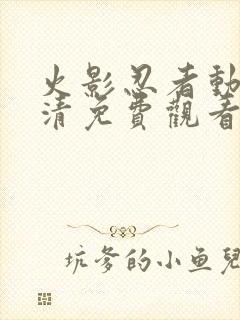 火影忍者動
清免費觀看
坑爹的小鱼兒